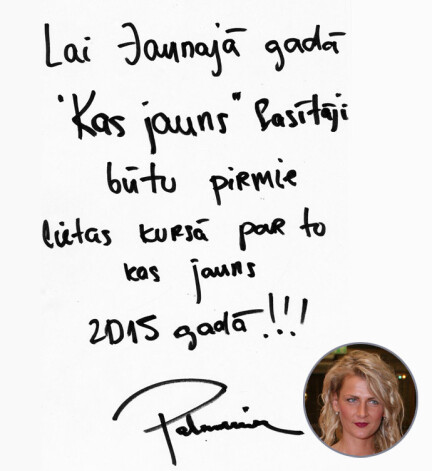 Lai Jaunajā gadā
"Kas jauns" lasītāji
būtu pirmie
lietas kursā par to
kas jauns
2015 gadā!!!